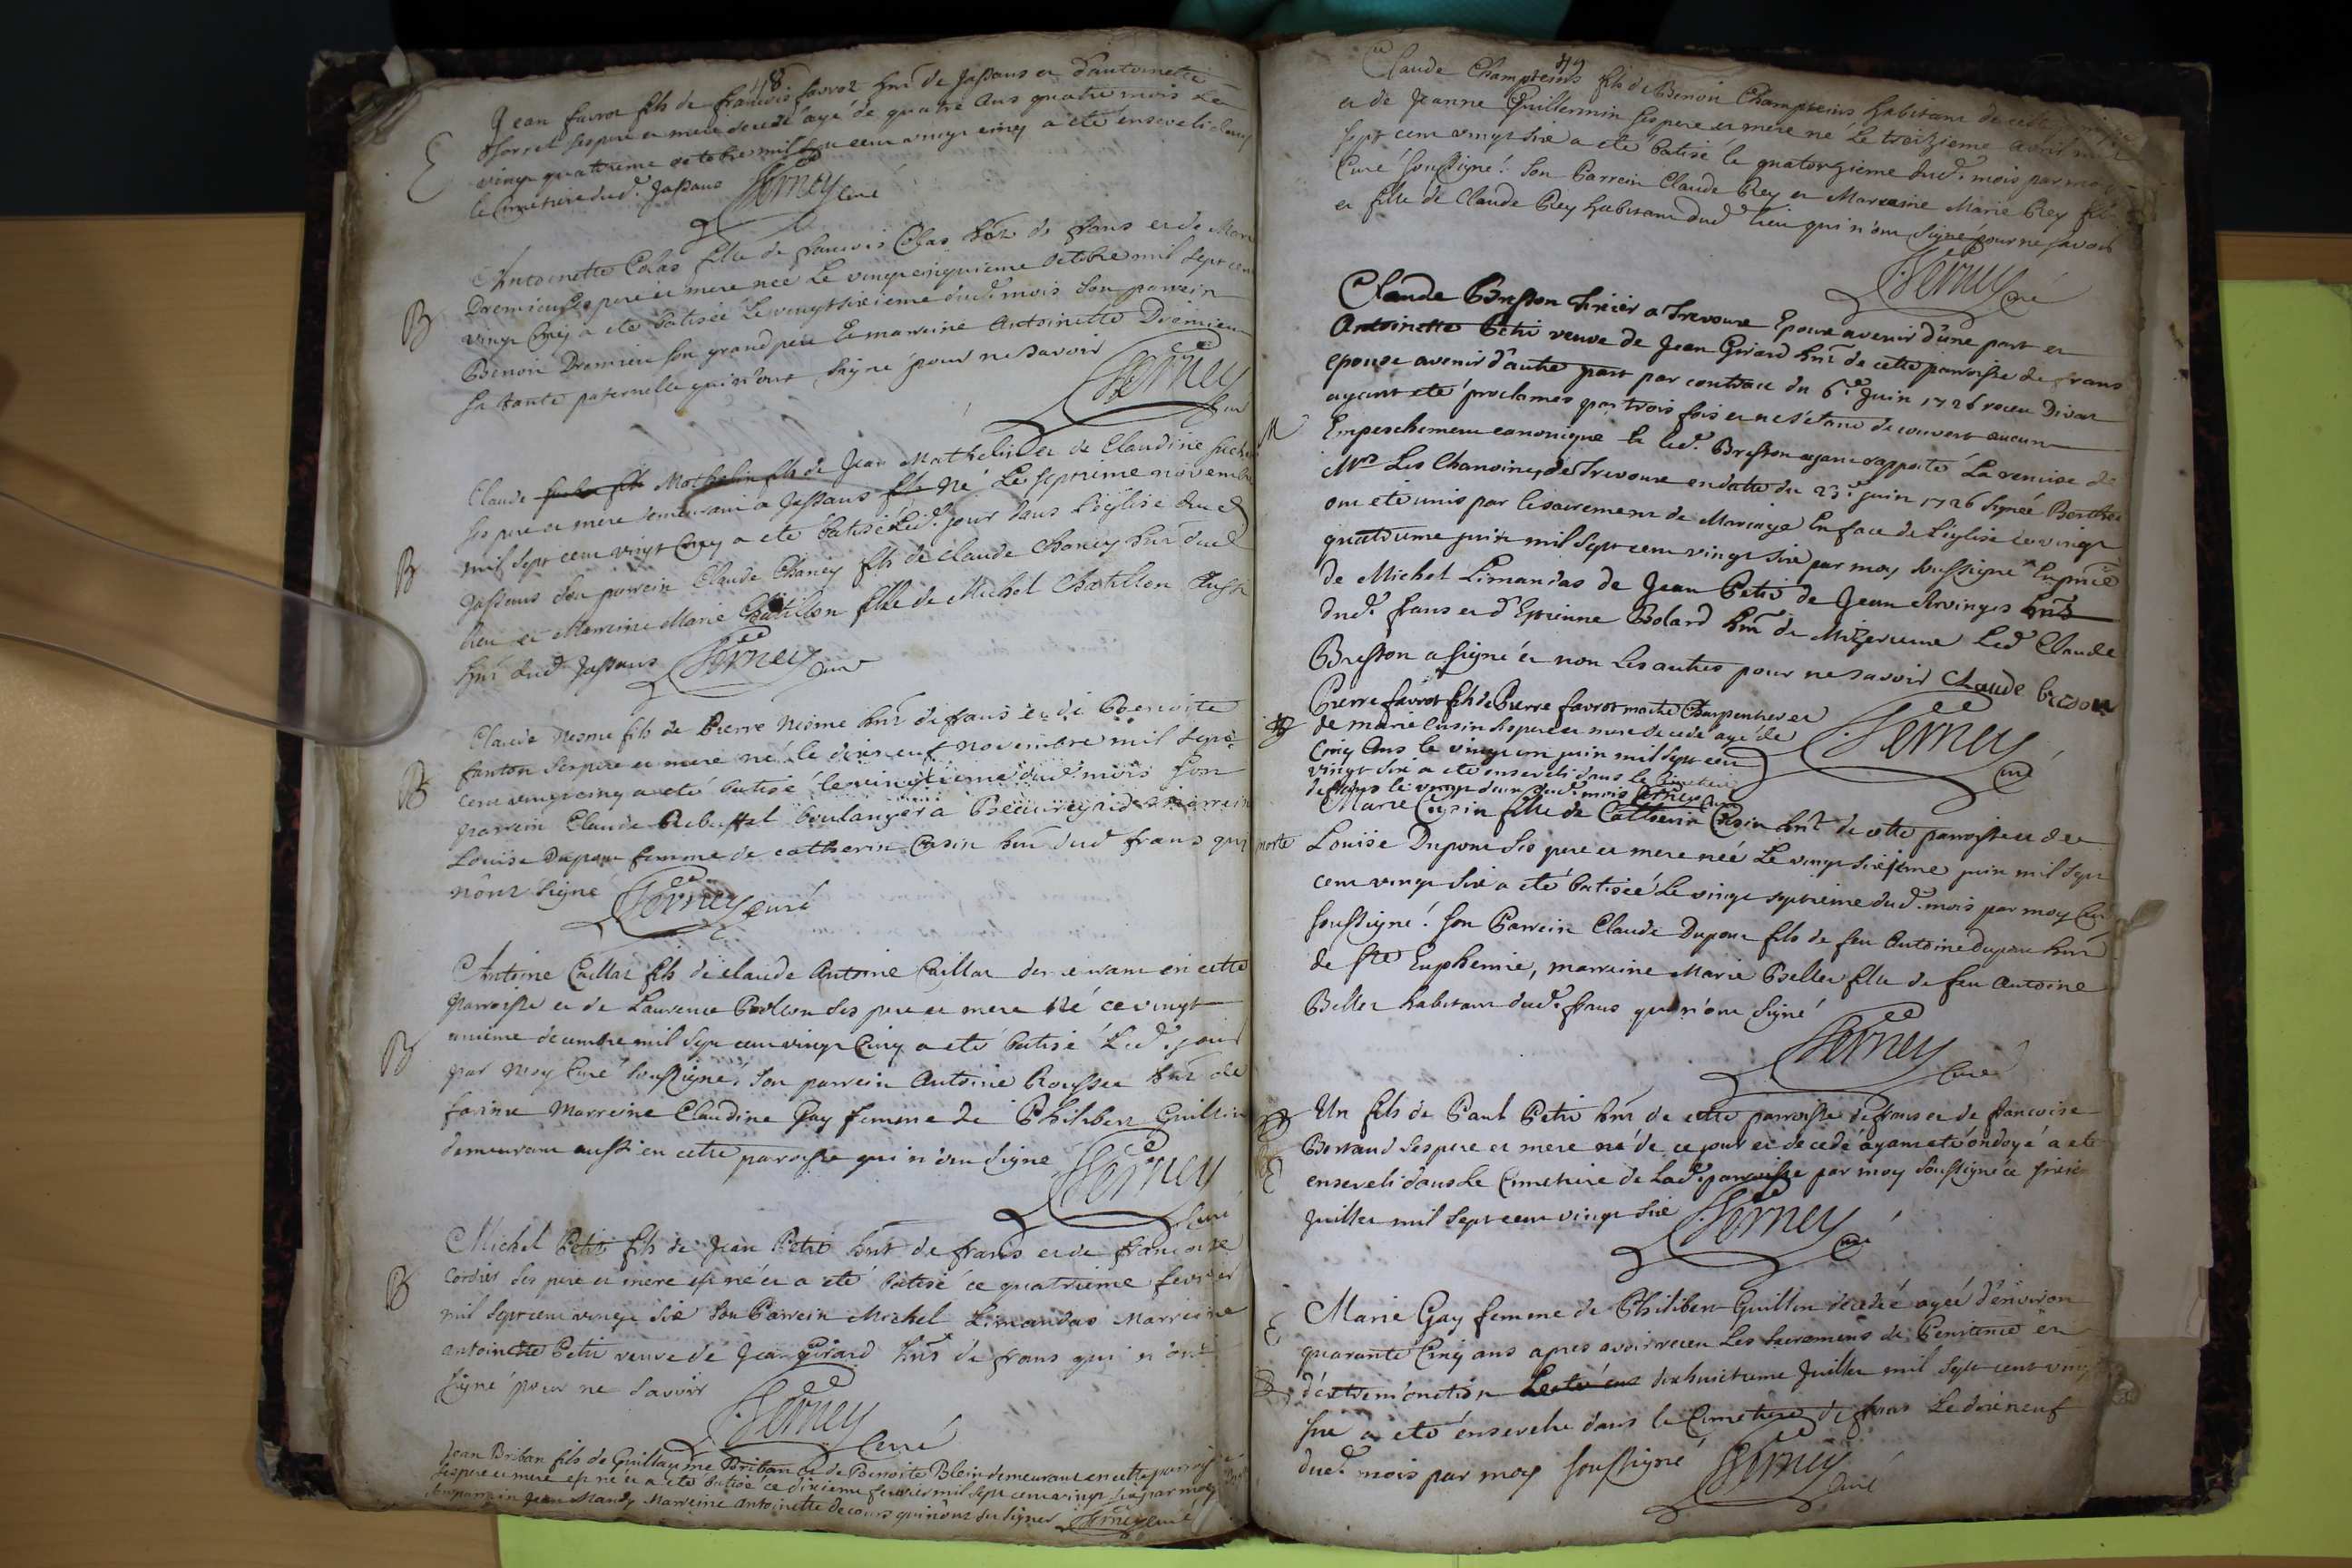 48
Jean favrot fils de francois favrot hnt de Jassans et d'antoinette
Thorret ses pere et mere decedé agé de quatre ans quatre mois le
vingt quatrieme octobre mil sept cent vingt cinq a eté enseveli dans
E
le Cimetiere dud. Jassans Serney curé
Antoinette Colas fille de francois Colas hnt de frans et de
Dremieu ses pere et mere née Le vingt cinquieme octobre mil sept cent
B
vingt cinq a eté batisée Le vingt sixieme dud. mois Son parrein
Benoit Dremieu son grand pere Et marreine Antoinette Dremieu
sa tante paternelle qui n'ont signé pour ne savoir
Serney
curé
Claude Mathelin fils de Jean Mathelin et de Claudine
ses pere et mere demeurant a Jassans né Le septieme novembre
mil sept cent vingt Cinq a eté batisé Led. jour dans L'eglise dud
B
Jassans son parrein Claude Chaney fils de claude Chaney hnt dud
lieu et Marreine Marie Chatillon fille de Michel Chatillon aussi
hnt dud Jassans Serney curé
Claude Nesme fils de Pierre Nesme hnt de frans et de Benoite
fanton ses pere et mere né le dixneuf novembre mil sept
B
cent vingt cinq a eté batisé le vingtieme dud. mois Son
parrein Claude Rebuffet boulanger a Beauregard marreine
Louise Dupont femme de catherin Cusin hnt dud frans qui
n'ont signé Serney curé
Antoine Caillat fils de claude Antoine Caillat demeurant en cette
parroisse et de Laurence ses pere et mere Né ce vingt
B
unieme decembre mil sept cent vingt Cinq a eté batisé Led. jour
par moy Curé soussigné, son parrein Antoine Rousset hnt de
Marreine Claudine Gay femme de Philibert Guillin
demeurant aussi en cette parroisse qui n'ont signé
Serney
curé
Michel Petit fils de Jean Petit hnt de frans et de françoise
B
Cordier ses pere et mere est né et a eté batisé ce quatrieme fevrier
mil sept cent vingt six son Parrein Michel Limandas Marreine
antoinette Petit veuve de Jean Girard hnts de frans qui n'ont
signé pour ne savoir
Serney
curé
Jean Briban fils de Guillaume Briban et de Benoite Blein demeurant en cette parroisse
ses pere et mere est né et a eté batisé ce dixieme fevrier mil sept cent vingt six par moy
son parrein Jean Mandy Marreine antoinette Decours qui n'ont su signer Serney curé
49
Claude Champteins fils de Benoit Champteins habitant de cette
et de Jeanne Guillermin ses pere et mere né Le treizieme avril mil
sept cent vingt six a eté batisé le quatorzieme dud. mois par moy
Curé soussigné. Son Parrein Claude Rey et Marreine Marie Rey
et fille de Claude Rey habitant dud lieu qui n'ont signé pour ne savoir
Serney
curé
Claude Bresson a Trevoux Epoux avenir d'une part et
Antoinette Petit veuve de Jean Girard hnt de cette parroisse de frans
epouse avenir d'autre part par contract du 6.e Juin 1726 receu
ayant eté proclames par trois fois et ne s'étant decouvert aucun
M
Empeschement canonique et led. Bresson ayant rapporté La remise de
Mrs Les Chanoines de Trevoux en datte du 23.e Juin 1726 signée
ont eté unis par le sacrement de Mariage En face de l'eglise ce vingt
quatrieme juin mil sept cent vingt six par moy soussigné En pnce
de Michel Limandas de Jean Petit de Jean hnts
dud. frans et d'Estienne Bolard hnt de Mizerieux Led Claude
Bresson a signé et non les autres pour ne savoir Claude bresson
Pierre favrot fils de Pierre favrot maitre Charpentier et
de marie Cusin ses pere et mere decedé agé de
Serney
curé
Cinq Ans le vingt un juin mil sept cent
vingt six a eté enseveli dans le Cimetiere
de frans le vingt deux dud. mois Serney curé
Marie Cusin fille de Catherin Cusin hnt de cette parroisse et de
morte
Louise Dupont ses pere et mere née Le vingt sixieme juin mil sept
cent vingt six a eté batisée Le vingt septieme dud. mois par moy Curé
soussigné. Son Parrein Claude Dupont fils de feu Antoine Dupont hnt
de Ste Euphemie, marreine Marie Bellet fille de feu Antoine
Bellet habitant dud. frans qui n'ont signé
Serney
curé
Un fils de Paul Petit hnt de cette parroisse de frans et de francoise
Bertraud ses pere et mere né de ce jour et decedé ayant eté ondoyé a eté
E
enseveli dans Le Cimetiere de Lad. parroisse par moy soussigné ce
Juillet mil sept cent vingt six Serney
curé
E
Marie Gay femme de Philibert Guillin decedée agée d'environ
quarante Cinq ans apres avoir receu Les Sacremens de Penitence et
d'extremonction dix huictieme Juillet mil sept cent vingt
six a eté ensevelie dans le Cimetiere de frans Le dixneuf
dud. mois par moy soussigné Serney
curé